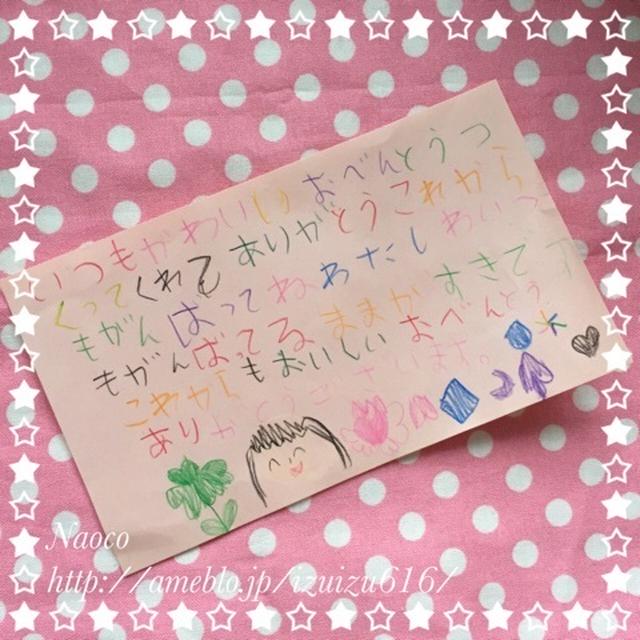 いつもかわいいおべんとうつ
くってくれてありがとうこれから
もがんばってねわたしわいつ
もがんばてるままがすきです
これからもおいしいおべんとう
ありがとうございます。
Naoco
http://ameblo.jp/izuizu616/